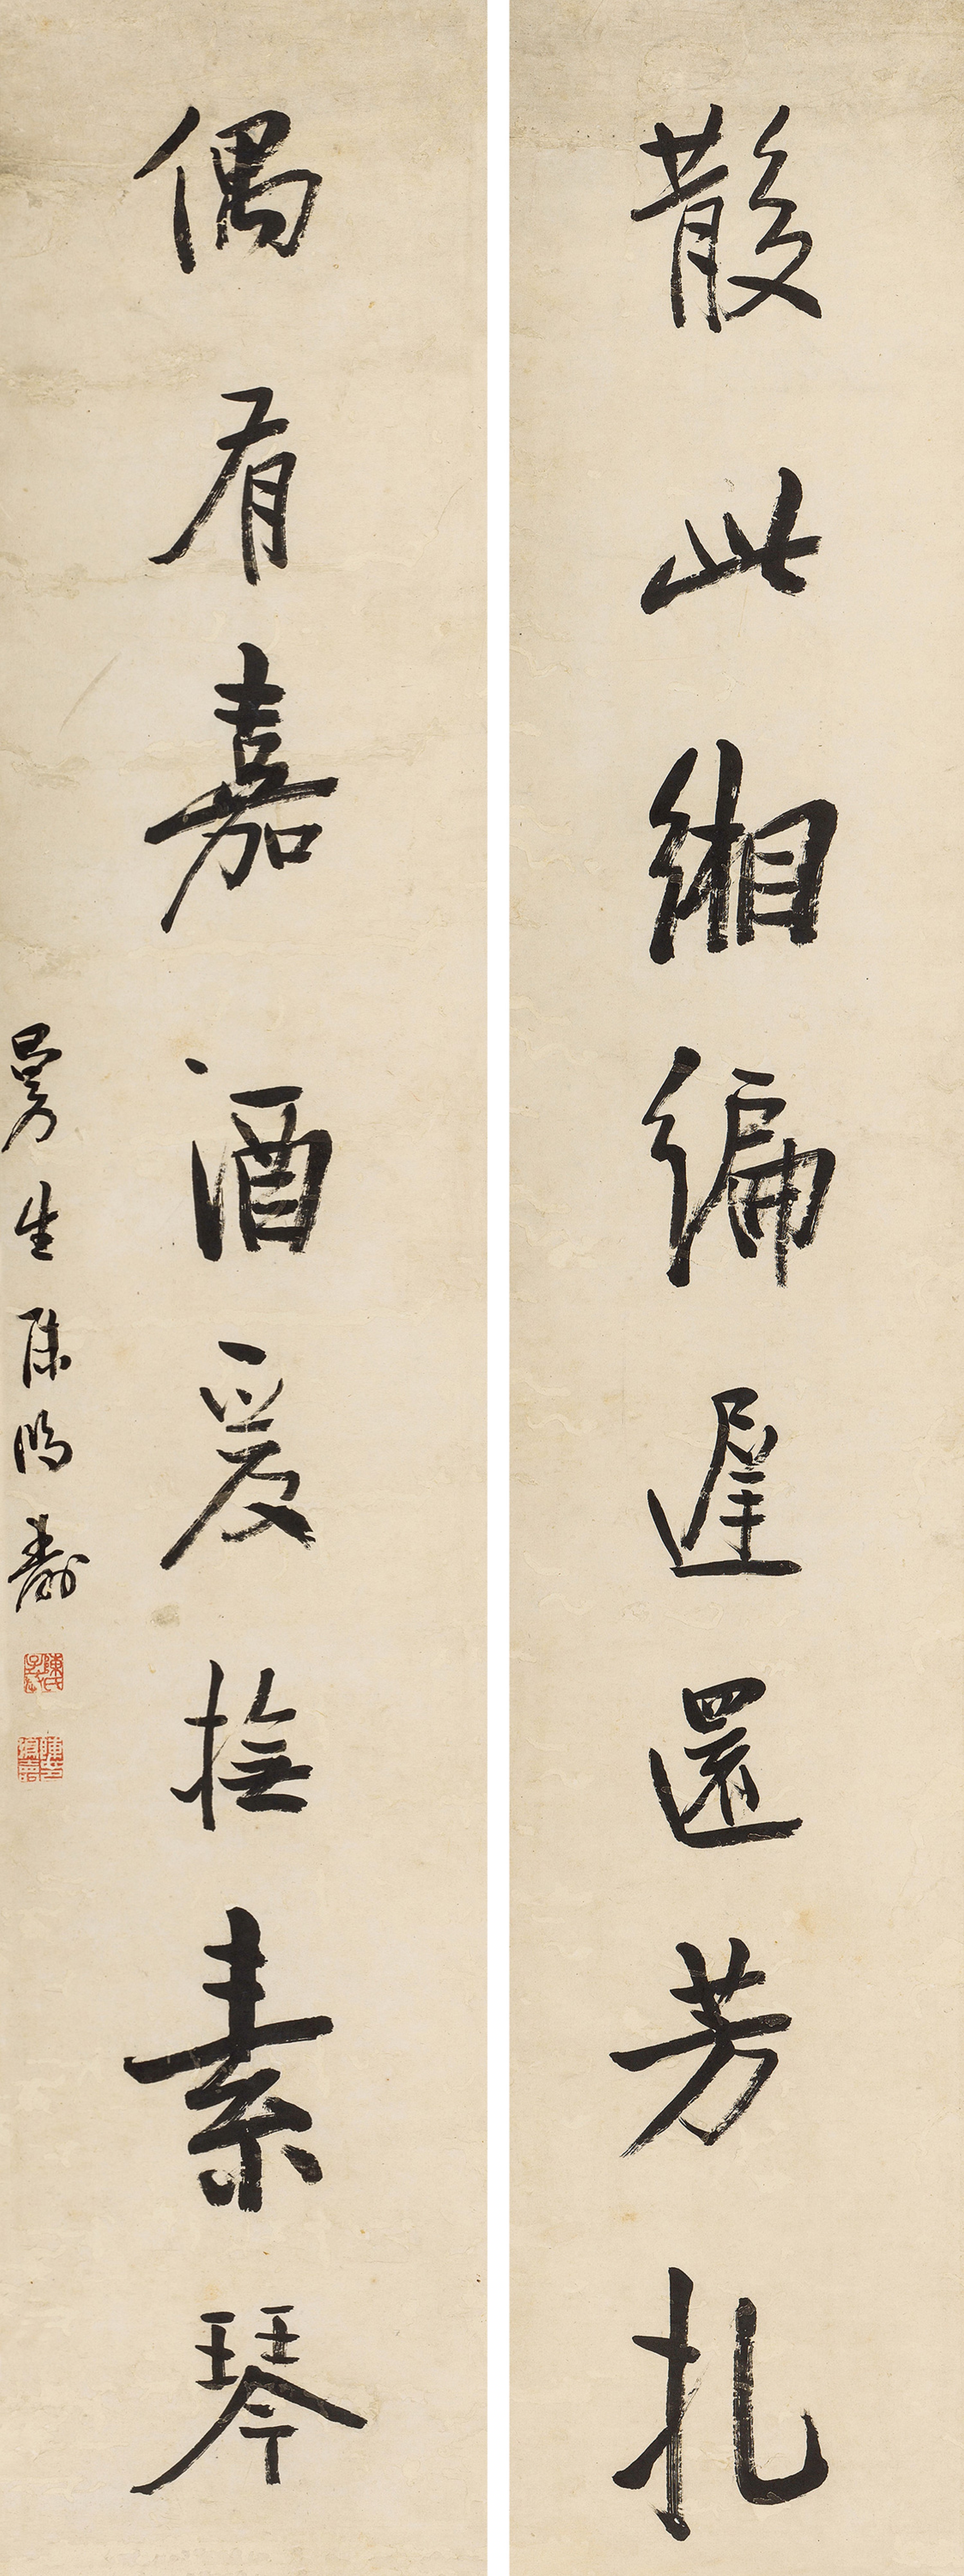 散此緗編遲還芳扎
偶有嘉酒爰撫素琴
曼生陳鴻壽